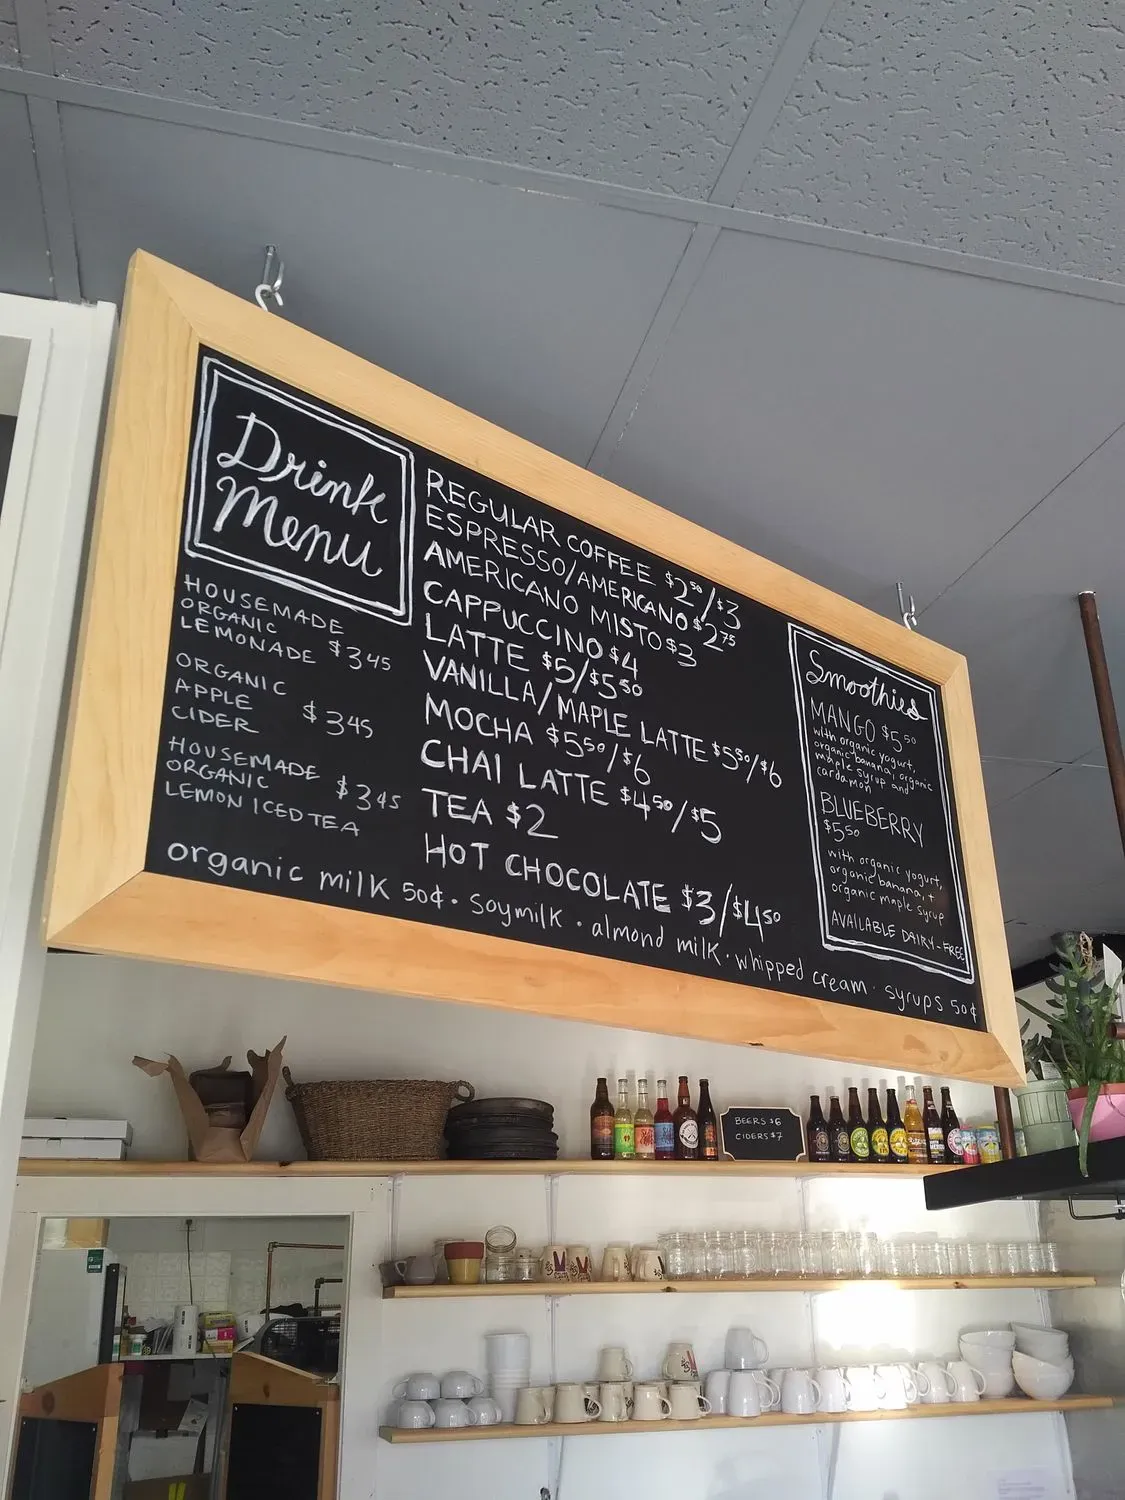 Drink
Menu
HOUSEMADE
ORGANIC
LEMONADE $3 45
ORGANIC
APPLE
CIDER $3 45
HOUSEMADE
ORGANIC
LEMON ICED TEA $3 45
REGULAR COFFEE $2 50/$3
ESPRESSO/AMERICANO $2 75
AMERICANO MISTO $3
CAPPUCCINO $4
LATTE $5/$5 50
VANILLA/MAPLE LATTE $5 50/$6
MOCHA $5 50/$6
CHAI LATTE $4 50/$5
TEA $2
HOT CHOCOLATE $3/$4 50
Smoothies
MANGO $5 50
with organic yogurt,
organic banana, organic
maple syrup and
cardamon
BLUEBERRY
$5 50
with organic yogurt,
organic banana, +
organic maple syrup
AVAILABLE DAIRY-FREE
organic milk 50¢ · soymilk · almond milk · whipped cream · syrups 50¢
BEERS $6
CIDERS $7